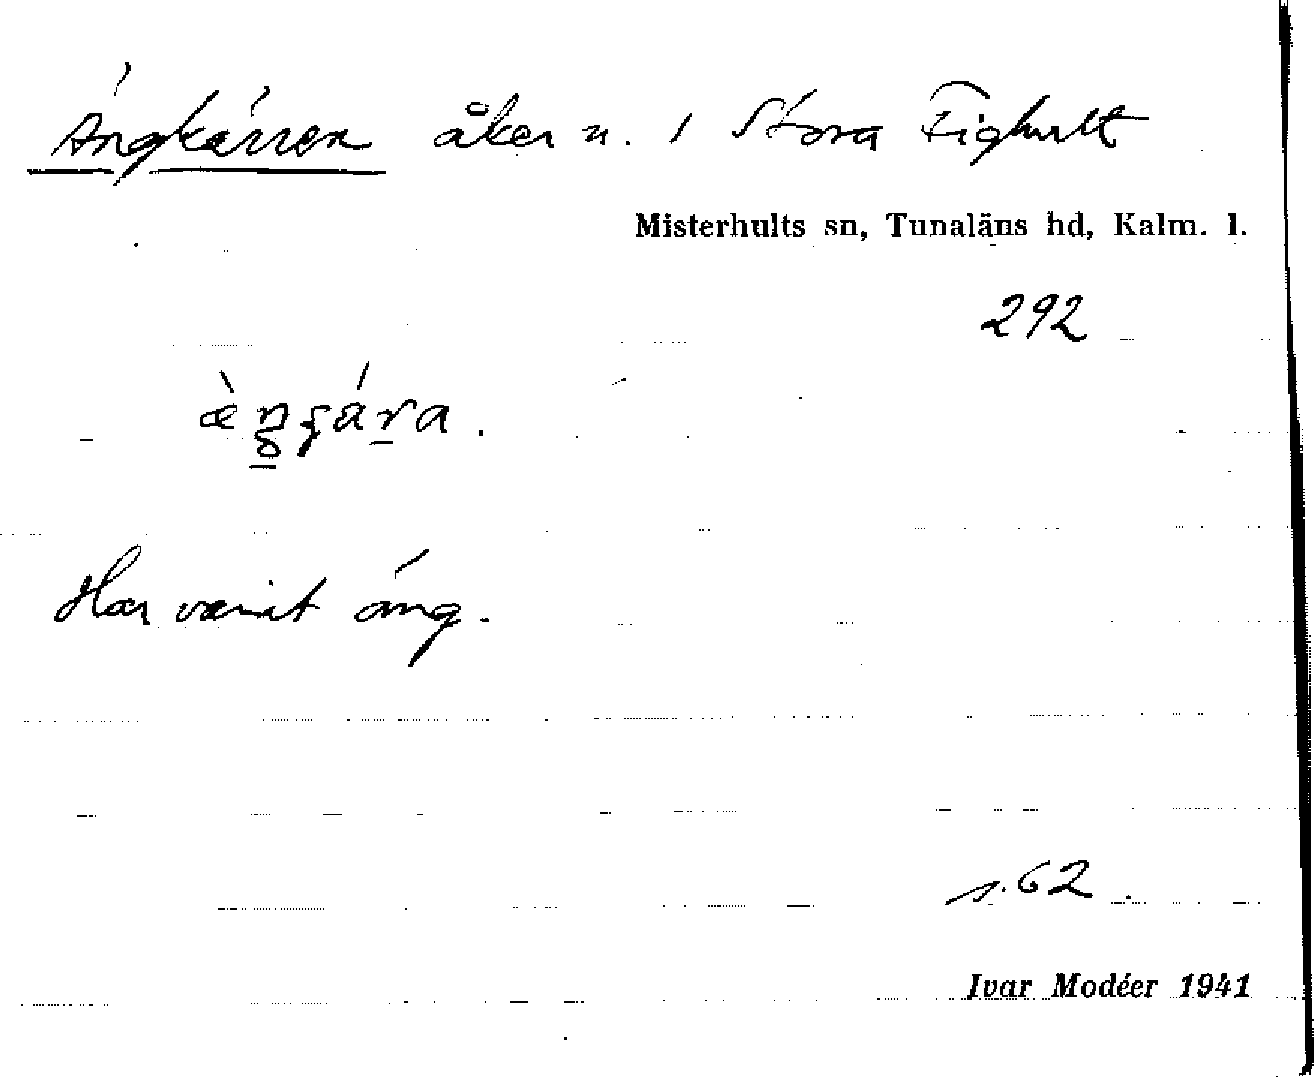 Ängkärren åker n. 1 Stora Fighult
Misterhults sn, Tunaläns hd, Kalm. l.
292
Har varit äng.
s. 62.
Ivar Modéer 1941